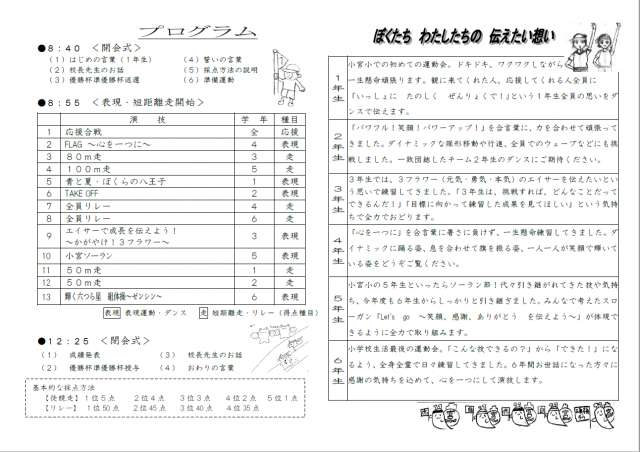 プログラム
●8:40 <開会式>
(1)はじめの言葉(1年生) (4)誓いの言葉
(2)校長先生のお話 (5)採点方法の説明
(3)優勝杯準優勝杯返還 (6)準備運動
●8:55 <表現・短距離走開始>
演技 学年 種目
1 応援合戦 全 応援
2 FLAG ～心を一つに～ 4 表現
3 80m走 3 走
4 100m走 5 走
5 青と夏・ぼくらの八王子 1 表現
6 TAKE OFF 2 表現
7 全員リレー 4 走
8 全員リレー 6 走
9 エイサーで成長を伝えよう!
～かがやけ!3フラワー～ 3 表現
10 小宮ソーラン 5 表現
11 50m走 1 走
12 50m走 2 走
13 輝く六つら星 組体操～ゼンシン～ 6 表現
表現 表現運動・ダンス 走 短距離走・リレー(得点種目)
●12:25 <閉会式>
(1) 成績発表 (3) 校長先生のお話
(2) 優勝杯準優勝杯授与 (4) おわりの言葉
基本的な採点方法
【徒競走】1位5点 2位4点 3位3点 4位2点 5位1点
【リレー】1位50点 2位45点 3位40点 4位35点
ぼくたち わたしたちの 伝えたい想い
1年生
小宮小での初めての運動会。ドキドキ、ワクワクしながら
一生懸命頑張ります。観に来てくれた人、応援してくれる人全員に
「いっしょに たのしく ぜんりょくで!」という1年生全員の思いをダ
ンスで伝えます。
2年生
「パワフル!笑顔!パワーアップ!」を合言葉に、力を合わせて頑張って
きました。ダイナミックな隊形移動や行進、全員でのウェーブなどにも挑
戦しました。一致団結したチーム2年生のダンスにご期待ください。
3年生
3年生では、3フラワー(元気・勇気・本気)のエイサーを伝えたいとい
う思いで練習してきました。「3年生は、挑戦すれば、どんなことだって
できるんだ!」「目標に向かって練習した成果を見てほしい」という気持
ちで全力でおどります。
4年生
「心を一つに」を合言葉に暑さに負けず、一生懸命練習してきました。ダ
イナミックに踊る姿、息を合わせて旗を振る姿、一人一人が笑顔で輝いて
いる姿をどうぞご覧ください。
5年生
小宮小の5年生といったらソーラン節!代々引き継がれてきた技や気持
ち、今年度も6年生からしっかりと引き継ぎました。みんなで考えたスロ
ーガン「Let's go ～笑顔、感謝、ありがとう を伝えよう～」が体現で
きるように全力で取り組みます。
6年生
小学校生活最後の運動会。「こんな技できるの?」から「できた!」にな
るよう、全身全霊で日々練習してきました。6年間お世話になった方々に
感謝の気持ちを込めて、心を一つにして演技します。